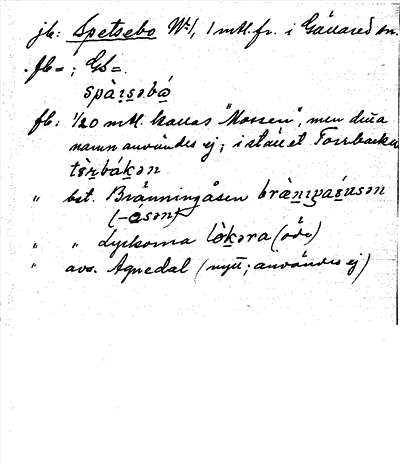 jb: Spetsebo No 1, 1 mtl. fr. i Gällared sn.
fb = ; GS =
spàr̲s̲əbo̲
fb: 1/20 mtl. kallas "Mossen", men detta
namn användes ej; i stället Torrbacken
tèr̲bák̲ən
" bst. Bränningåsen
(-ɑ́sən)
" " Lyckorna lò̲k̲əra (öde)
" avs. Agnedal (nytt; användes ej)